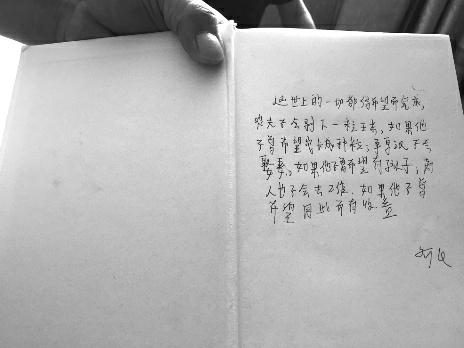 这世上的一切都借希望而完成,
农夫不会剥下一粒玉米,如果他
不曾希望它长成种粒;单身汉不会
娶妻,如果他不曾希望有孩子;商
人也不会去工作,如果他不曾
希望因此而有收益